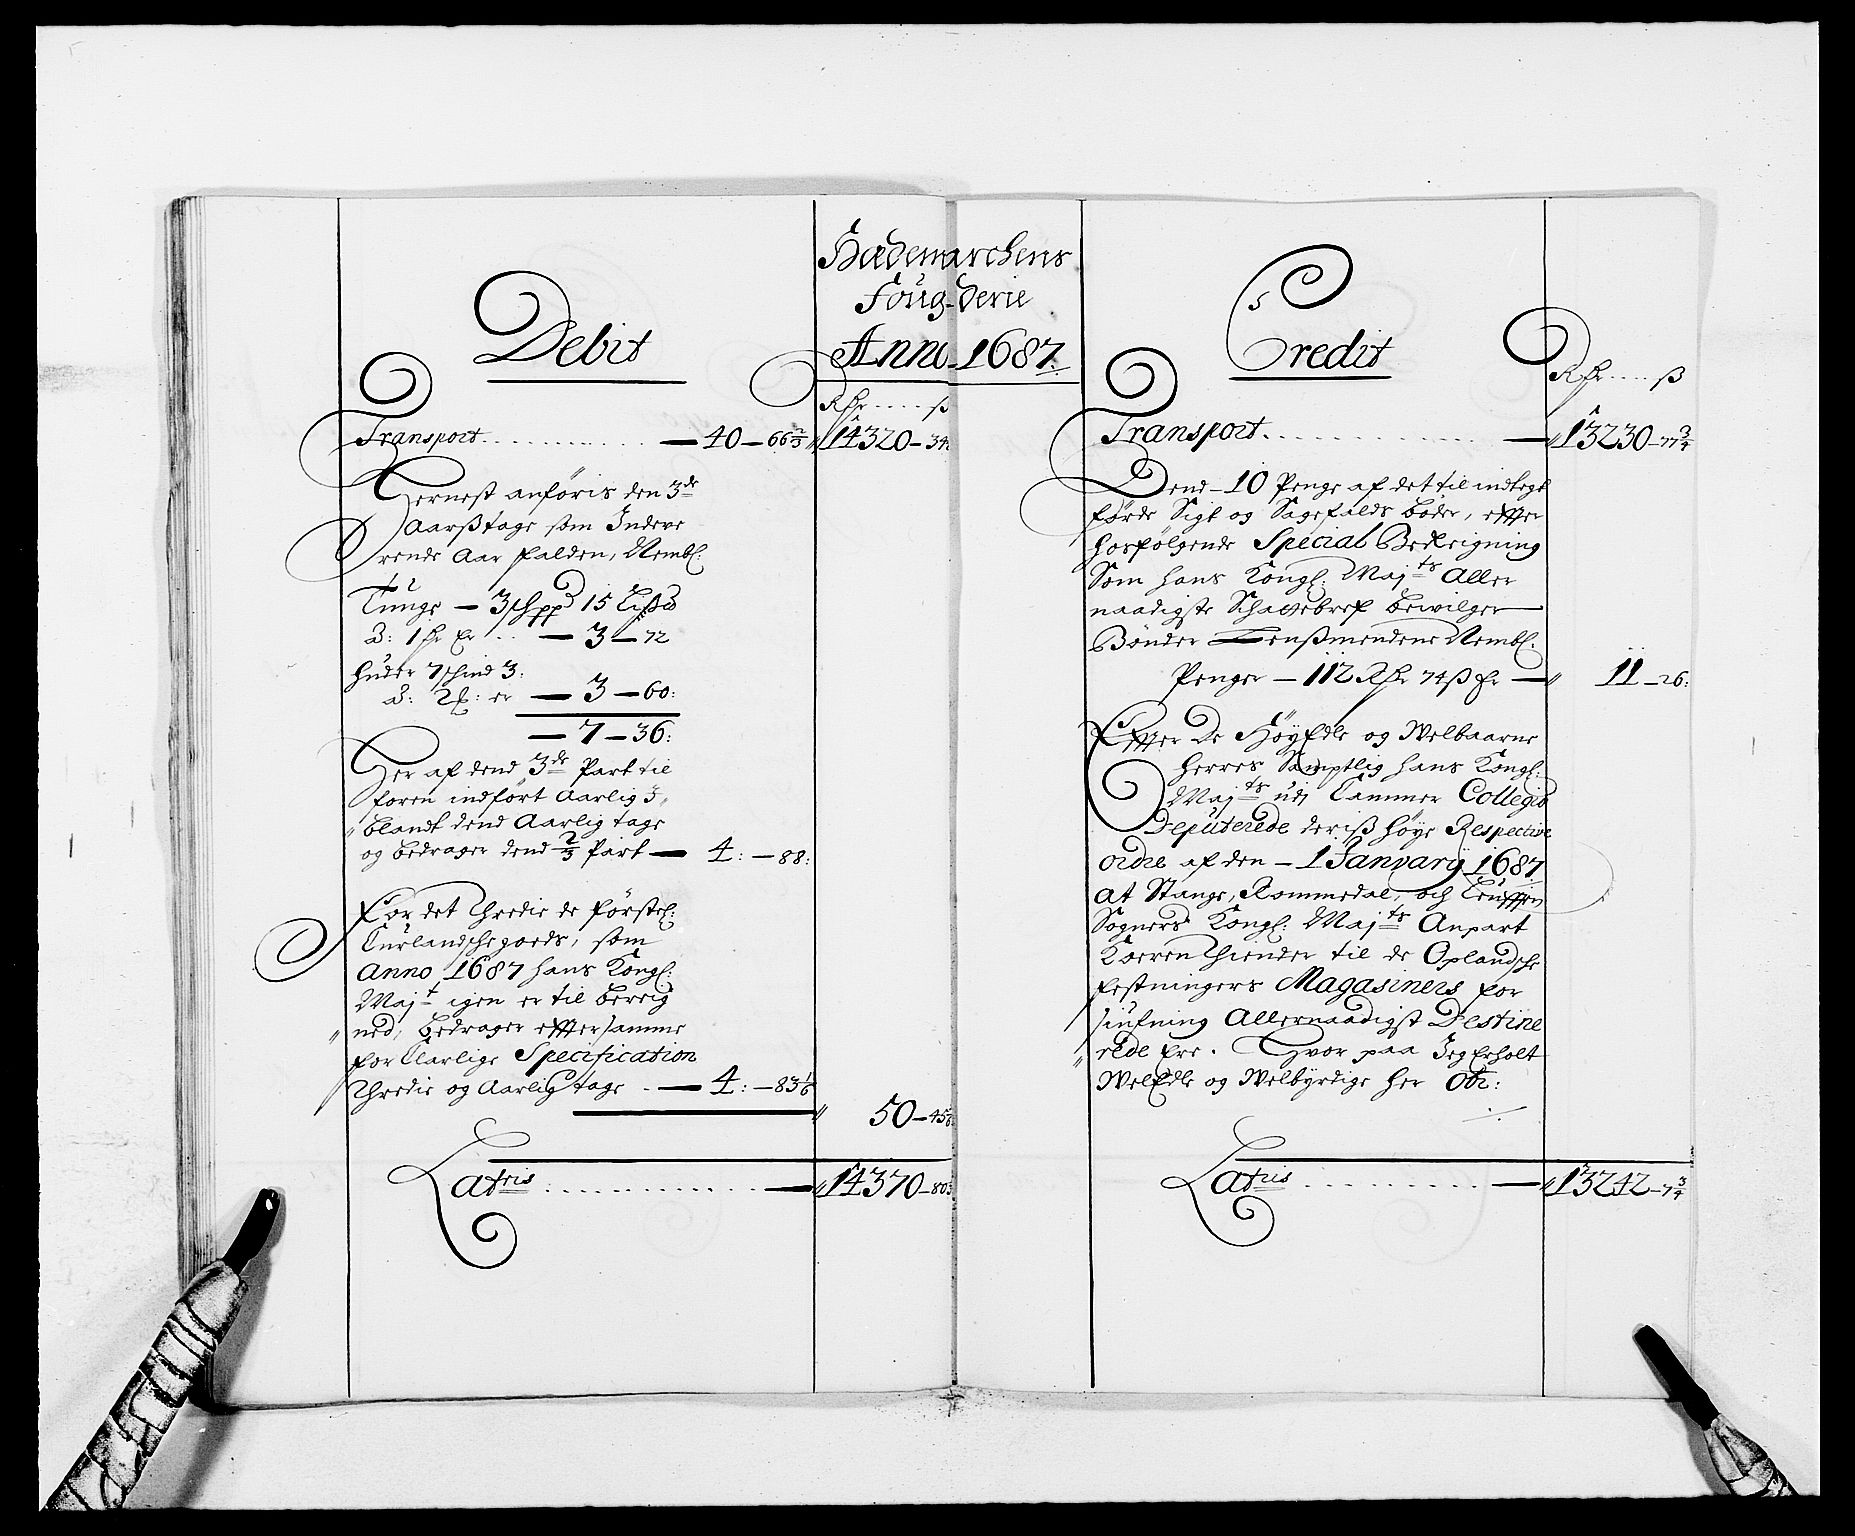 Hædemarchens
Fougderie
Anno 1687.
Debit
Rdr ..... ß
Transport .......... — 40 — 66 2/3 14320 — 34
Fernest anföris den 3de
Aarßtage som Indeve
rende Aar falden, Nembl:
Tunge — 3 schppd 15 Lißd
a: 1 Rdr er .. — 3 — 72
huder 7 schind 3:
a: 2 er — 3 — 60:
— 7 — 36:
Her af dend 3de Part til
foren indfört Aarlig
blandt dend Aarlig tage
og bedrager dend 2/3 Part — 4: — 88:
For det Thredie de förstel:
Curlandsche goeds, som
Anno 1687 hans Kongl:
Majt igen er til bereig
ned, bedrager effter samme
for Clarlige Specification
Thredie og Aarlig tage . — 4: — 83 1/6
50 — 45
Latris .......... — 14370 — 80
5
Credit
Rdr ..... ß
Transport .......... — 13230 — 77 3/4
Dend — 10 Penge af det til indtegt
förde Sigt og Sagefalds böder, effter
hosfölgende Special Bereigning
Som hans Kongl: Majts Aller
naadigste Schattebref bewilger
Bönder Lensmendene Nembl:
Penger — 112 Rdr 74 ß er — 11 — 26:
Effter De Höy Edle og Welbaarne
Herrer Samptlig hans Kongl:
Majts udj Cammer Collegio
Deputerede deriß höye Respective
ordre af den — 1 January 1687
at Stange, Rommedal, och Leuffen
Sogners Kongl: Majts Anpart
Koeren thiender til de Oplandsche
festningers Magasiners for
siufning Allernaadigst Destine
rede ere. Hvor paa Jeg Erholt
WelEdle og Welbyrdige her Ob:
Latris .......... — 13242 — 7 3/4